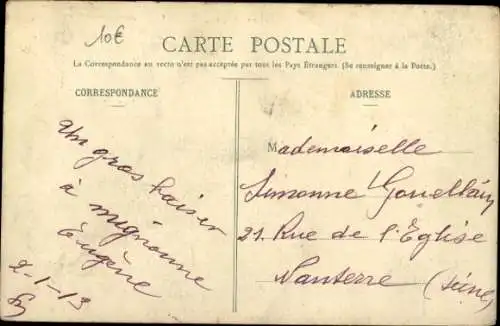 10€
CARTE POSTALE
La Correspondance au recto n'est pas acceptée par tous les Pays Étrangers. (Se renseigner à la Poste.)
CORRESPONDANCE
Un gros baiser
à mignonne
Eugène
2-1-13
ADRESSE
Mademoiselle
Simonne
21. Rue de l'Église
Nanterre (Seine)